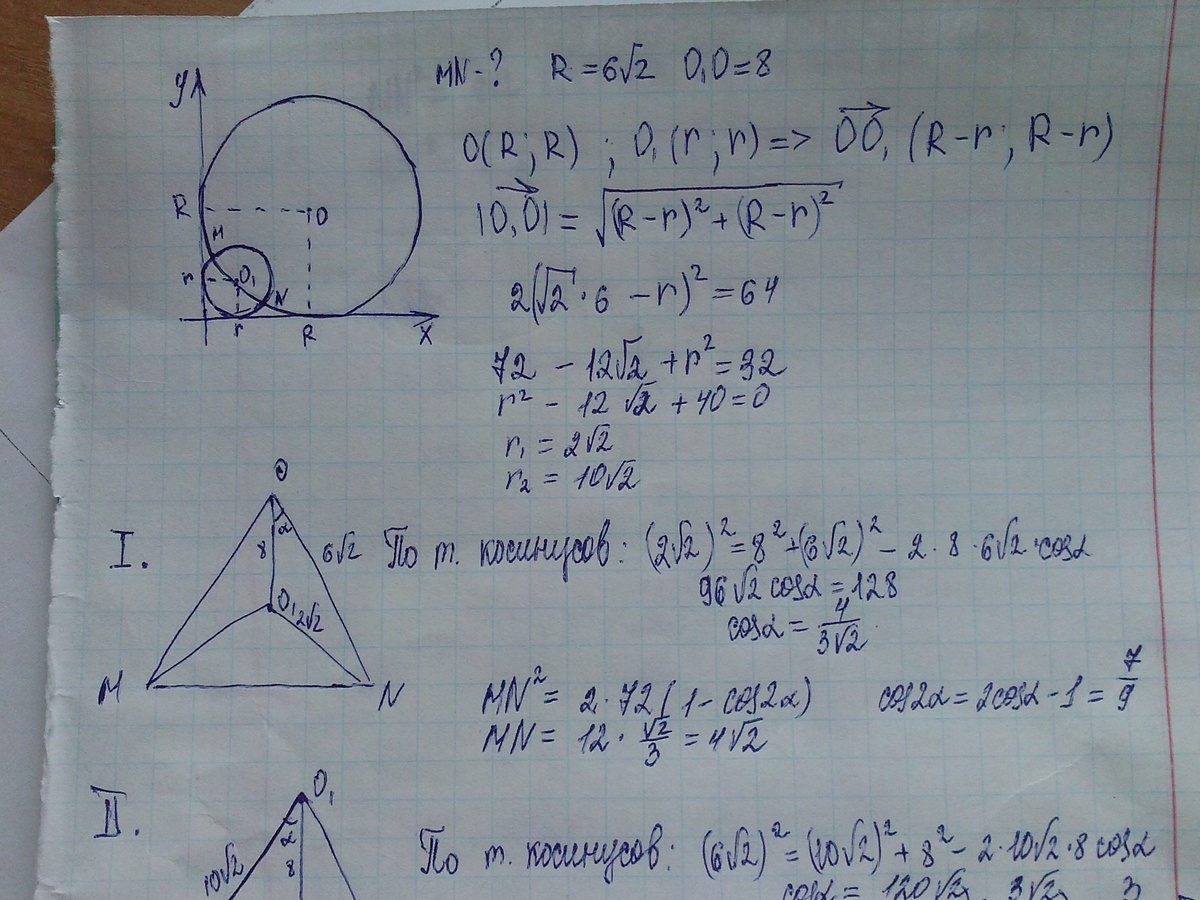 MN - ? R = 6√2 O₁O = 8
y
O(R; R) ; O₁(r; r) => OO₁ (R-r; R-r)
R O
|O₁O| = √((R-r)² + (R-r)²)
M
r O₁
N
r R x
2(√2 · 6 - r)² = 64
72 - 12√2 + r² = 32
r² - 12√2 + 40 = 0
r₁ = 2√2
r₂ = 10√2
I.
O
α
8 6√2
O₁ 2√2
M N
По т. косинусов: (2√2)² = 8² + (6√2)² - 2 · 8 · 6√2 · cosα
96√2 cosα = 128
cosα = 4/(3√2)
MN² = 2 · 72 (1 - cos2α) cos2α = 2cosα - 1 = 7/9
MN = 12 · √2/3 = 4√2
II.
O₁
α
10√2 8
По т. косинусов: (6√2)² = (10√2)² + 8² - 2 · 10√2 · 8 cosα
cosα = 120√2 3√2 3